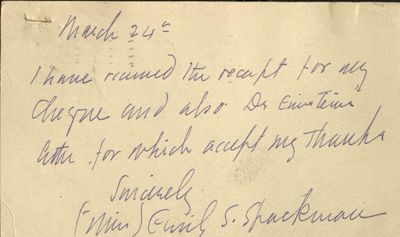 March 24th
I have received the receipt for my
cheque and also Dr Einsteins
letter for which accept my thanks
Sincerely
(Miss) Emily S. Spackman